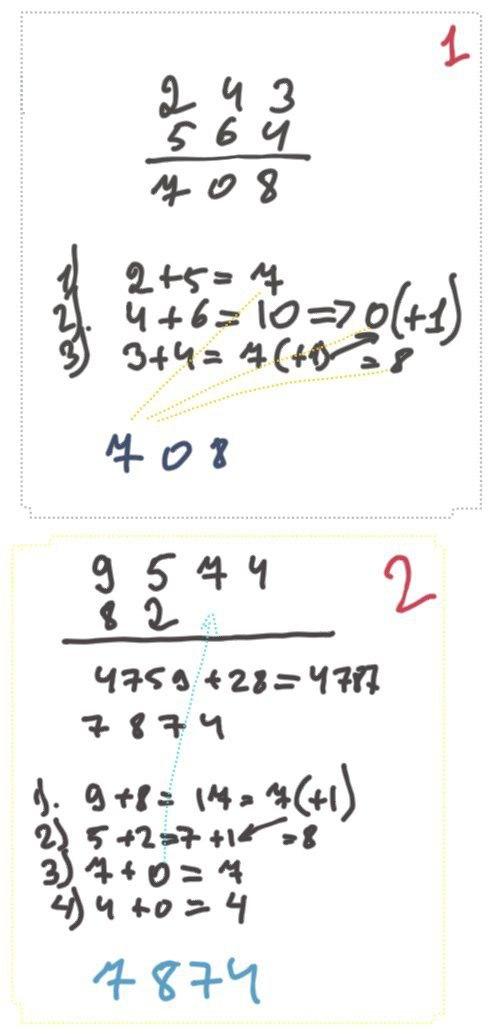 1
2 4 3
5 6 4
7 0 8
1) 2+5= 7
2). 4+6= 10 => 0(+1)
3) 3+4= 7(+1) =8
7 0 8
2
9 5 7 4
8 2
4759 +28=4787
7 8 7 4
1). 9+8= 17= 7(+1)
2) 5+2=7 +1 =8
3) 7+0= 7
4) 4 +0= 4
7874